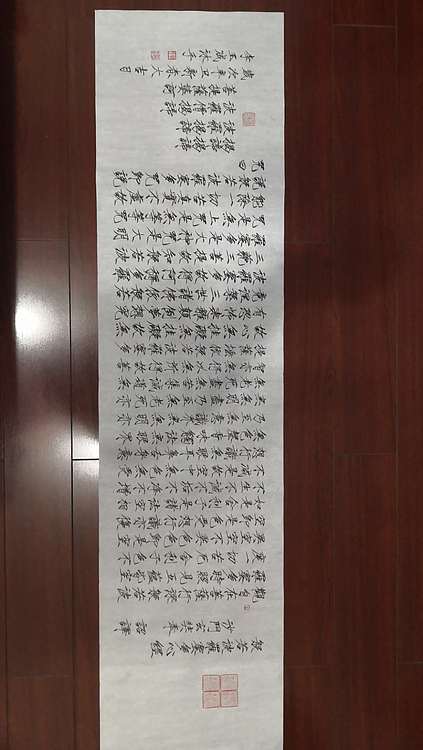 般若波羅蜜多心經
沙門玄奘奉詔譯
觀自在菩薩行深般若波
羅蜜多時照見五蘊皆空
度一切苦厄舍利子色不
異空空不異色色即是空
空即是色受想行識亦復
如是舍利子是諸法空相
不生不滅不垢不淨不增
不減是故空中無色無受
想行識無眼耳鼻舌身意
無色聲香味觸法無眼界
乃至無意識界無無明亦
無無明盡乃至無老死亦
無老死盡無苦集滅道無
智亦無得以無所得故菩
提薩埵依般若波羅蜜多
故心無罣礙無罣礙故無
有恐怖遠離顛倒夢想究
竟涅槃三世諸佛依般若
波羅蜜多故得阿耨多羅
三藐三菩提故知般若波
羅蜜多是大神咒是大明
咒是無上咒是無等等咒
能除一切苦真實不虛故
說般若波羅蜜多咒即說
咒曰
揭諦揭諦
波羅揭諦
波羅僧揭諦
菩提薩婆訶
歲次辛丑新春大吉日
李玉成沐手